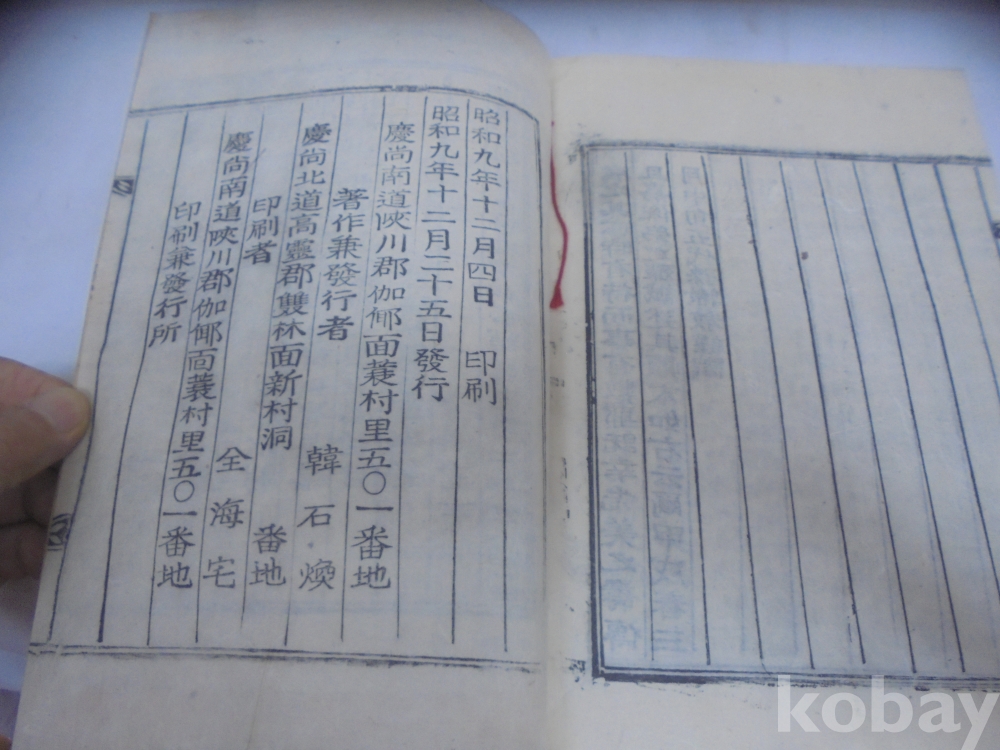 昭和九年十二月四日 印刷
昭和九年十二月二十五日發行
慶尚南道陜川郡伽倻面蓑村里五〇一番地
著作兼發行者 韓石煥
慶尚北道高靈郡雙林面新村洞 番地
印刷者 全海宅
慶尚南道陜川郡伽倻面蓑村里五〇一番地
印刷兼發行所
kobay